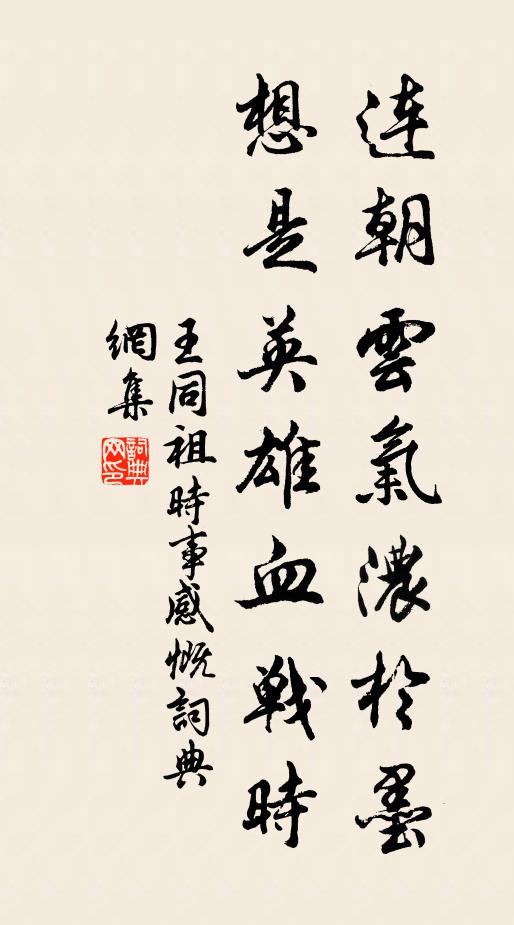 連朝雲氣濃於墨
想是英雄血戰時
王同祖時事感慨詞典
網集
詞典網印